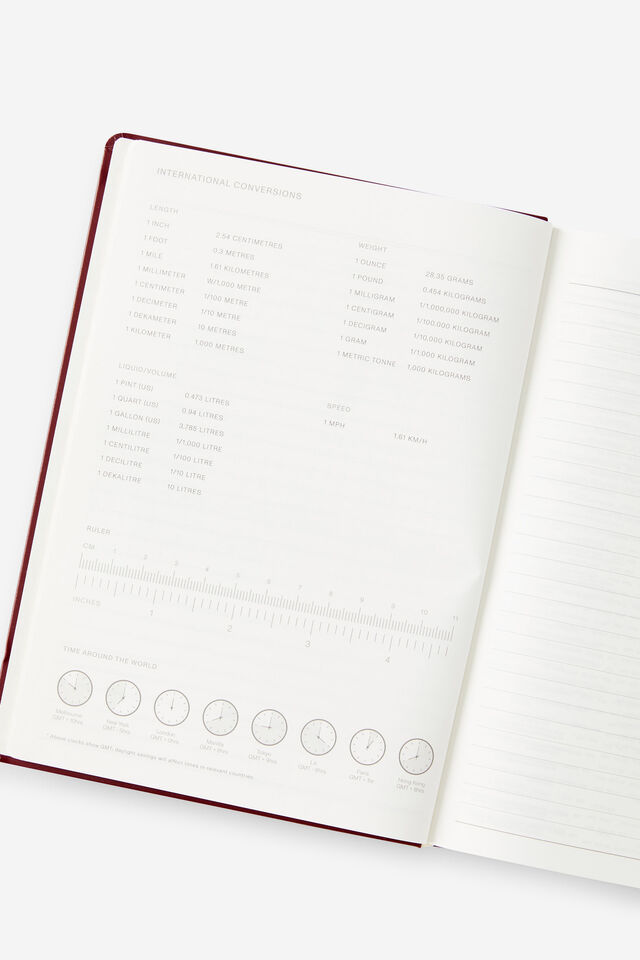 INTERNATIONAL CONVERSIONS
LENGTH
1 INCH 2.54 CENTIMETRES
1 FOOT 0.3 METRES
1 MILE 1.61 KILOMETRES
1 MILLIMETER W/1,000 METRE
1 CENTIMETER 1/100 METRE
1 DECIMETER 1/10 METRE
1 DEKAMETER 10 METRES
1 KILOMETER 1,000 METRES
WEIGHT
1 OUNCE 28.35 GRAMS
1 POUND 0.454 KILOGRAMS
1 MILLIGRAM 1/1,000,000 KILOGRAM
1 CENTIGRAM 1/100,000 KILOGRAM
1 DECIGRAM 1/10,000 KILOGRAM
1 GRAM 1/1,000 KILOGRAM
1 METRIC TONNE 1,000 KILOGRAMS
LIQUID/VOLUME
1 PINT (US) 0.473 LITRES
1 QUART (US) 0.94 LITRES
1 GALLON (US) 3,785 LITRES
1 MILLILITRE 1/1,000 LITRE
1 CENTILITRE 1/100 LITRE
1 DECILITRE 1/10 LITRE
1 DEKALITRE 10 LITRES
SPEED
1 MPH 1.61 KM/H
RULER
CM 1 2 3 4 5 6 7 8 9 10 11
INCHES 1 2 3 4
TIME AROUND THE WORLD
Melbourne New York London Manila Tokyo La Paris Hong Kong
GMT + 10hrs GMT - 5hrs GMT + 0hrs GMT + 8hrs GMT + 9hrs GMT - 8hrs GMT + 1hr GMT + 8hrs
* Above clocks show GMT, daylight savings will affect times in relevant countries.